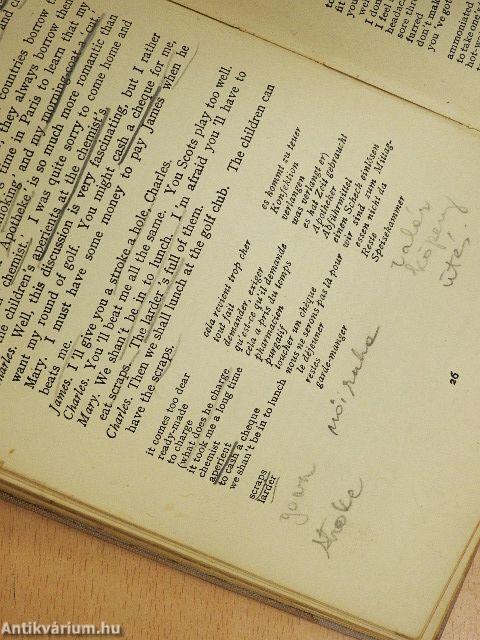 countries borrow
they always borrow them
time in Paris to learn that my
smoking' and my morning-coat a
Apotheke' is so much more romantic than
chemist.' I was quite sorry to come home and
the children's aperients at the chemist's.
Charles. Well, this discussion is very fascinating, but I rather
want my round of golf. You might cash a cheque for me,
Mary. I must have some money to pay James when he
beats me.
James. I'll give you a stroke a hole, Charles.
Charles. You'll beat me all the same. You Scots play too well.
Mary. We shan't be in to lunch. I'm afraid you'll have to
eat scraps. The larder's full of them.
Charles. Then we shall lunch at the golf club. The children can
have the scraps.
it comes too dear
ready-made
to charge
(what does he charge
it took me a long time
chemist
aperient
to cash a cheque
we shan't be in to lunch
scraps
larder
cela revient trop cher
tout fait
demander, exiger
qu'est-ce qu'il demande
cela a pris du temps
pharmacien
purgatif
toucher un chèque
nous ne serons pas là pour
le déjeuner
restes
garde-manger
es kommt zu teuer
Konfektion
verlangen
was verlangt er)
es hat Zeit gebraucht
Apotheker
Abführmittel
einen Scheck einlösen
wir sind zum Mittag-
essen nicht da
Reste
Speisekammer
köpeny
ütés
női ruha
gown
stroke
26
Antikvárium.hu